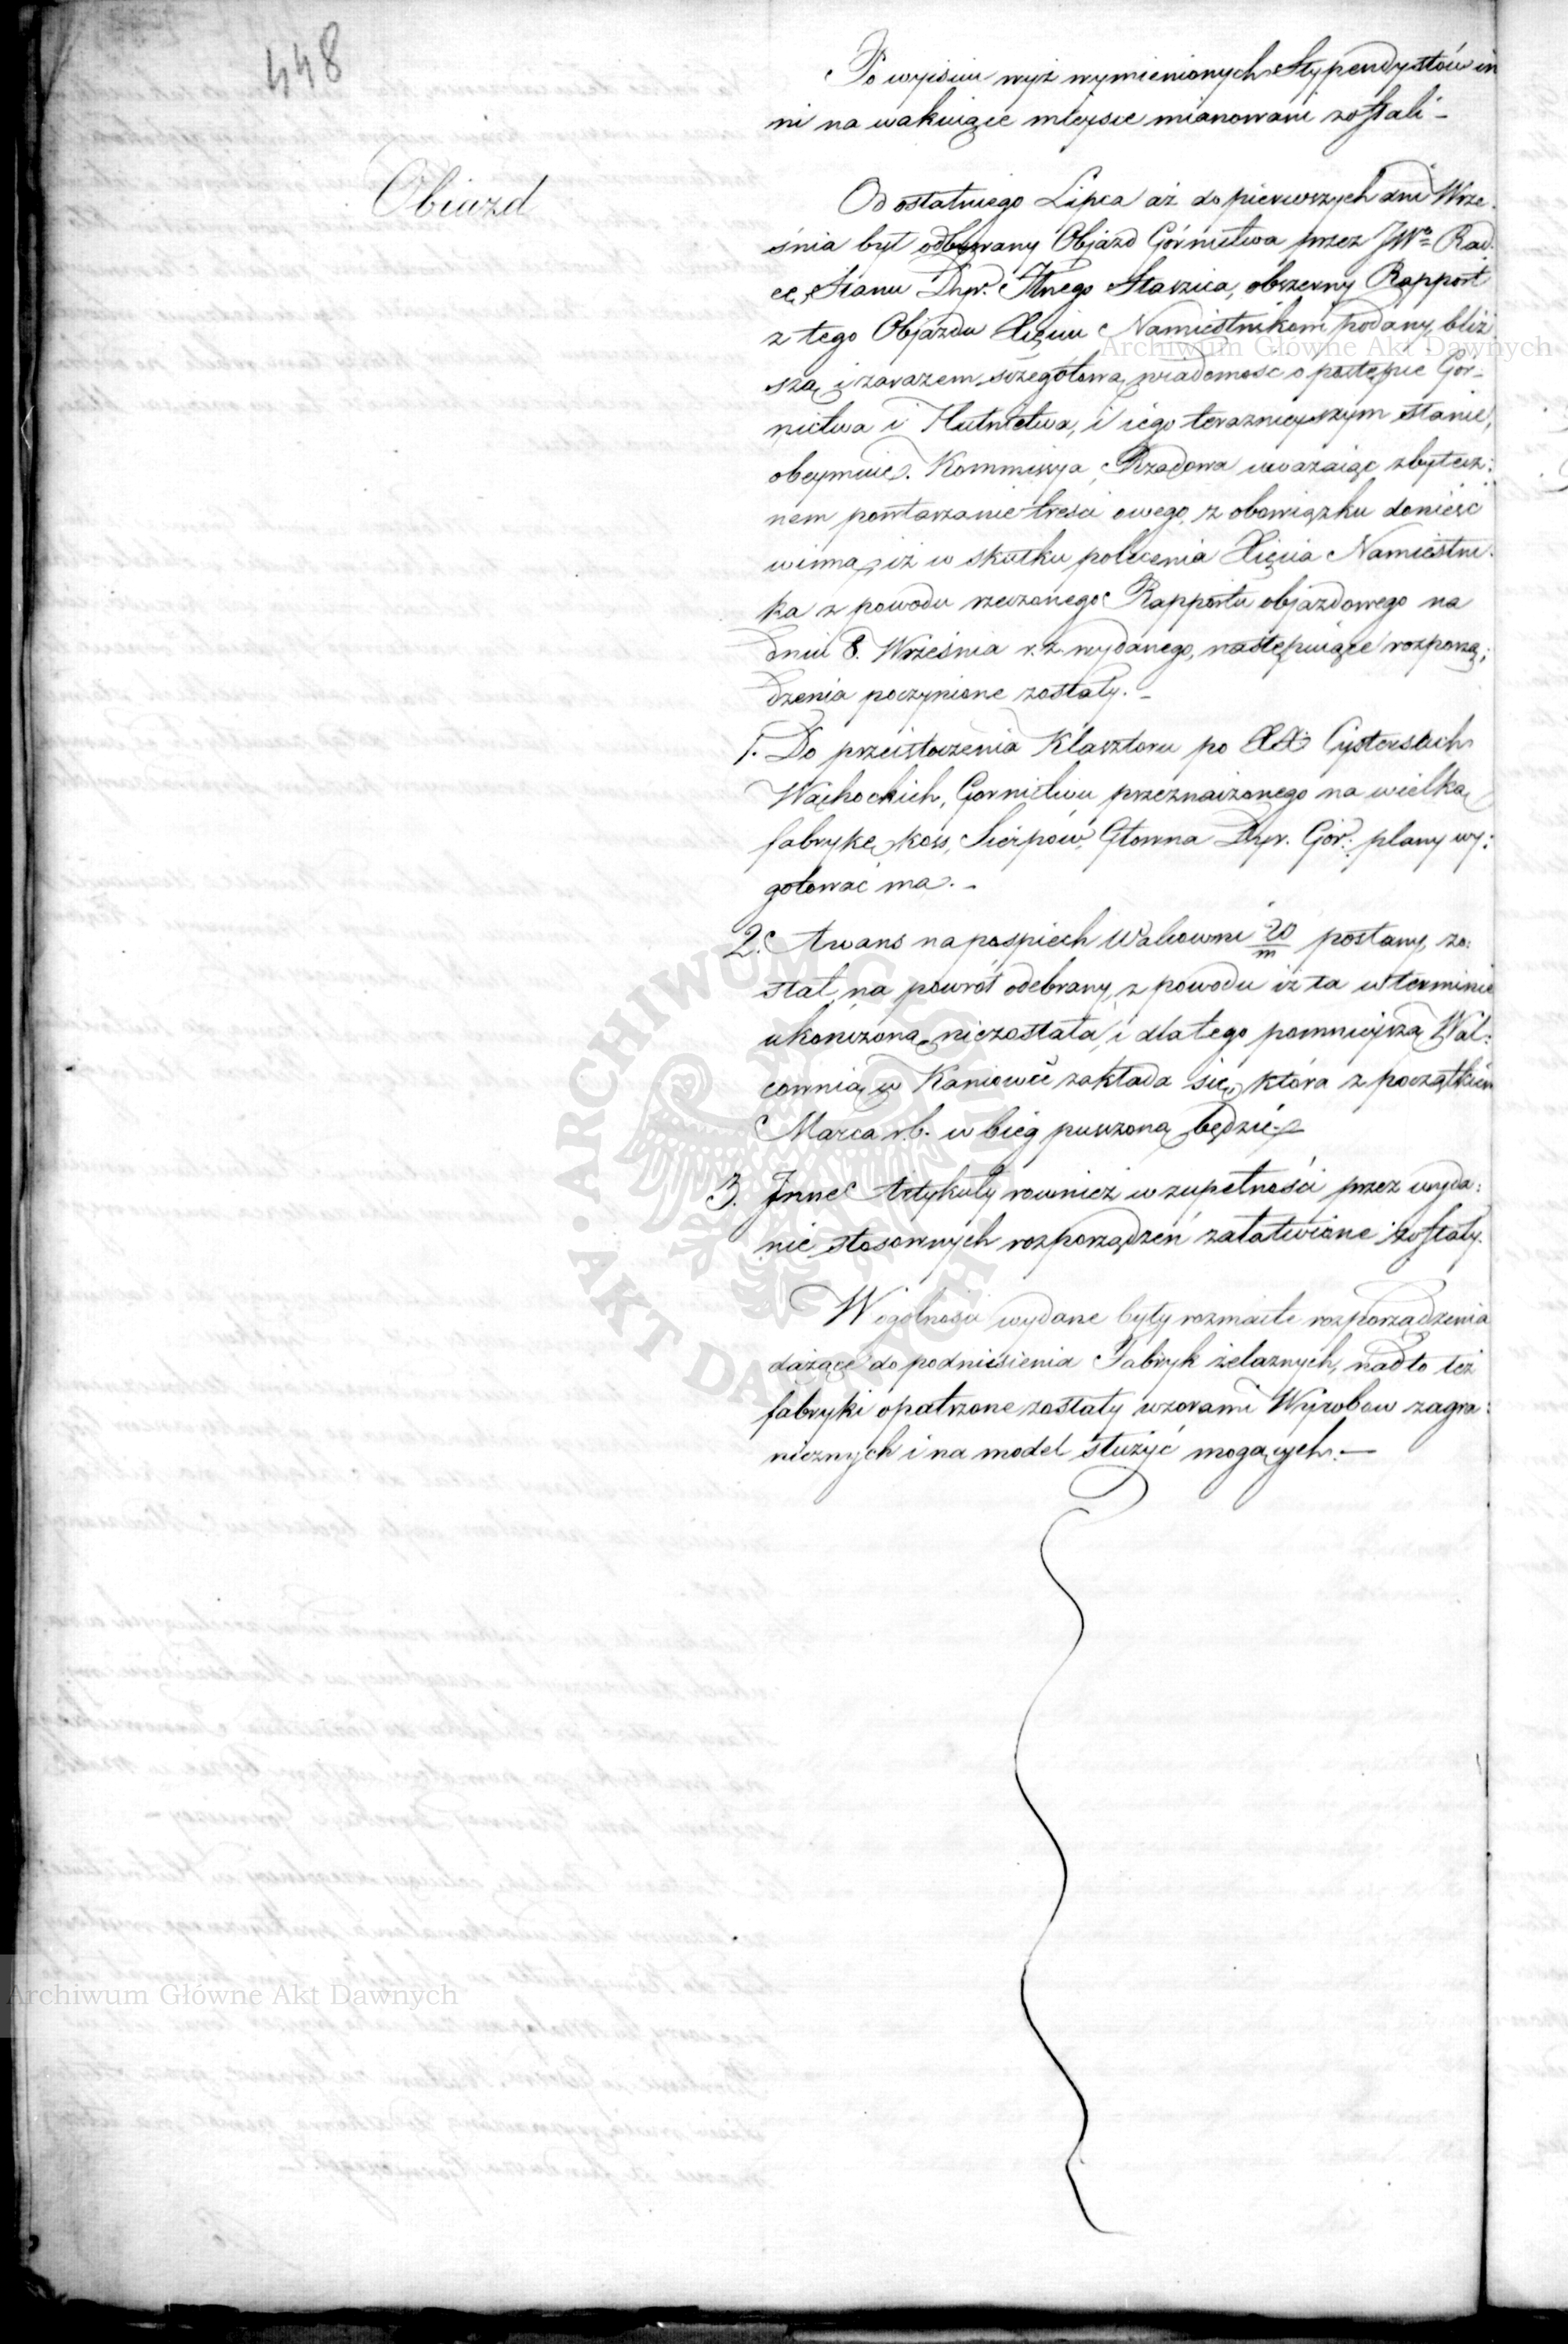 448
Obiazd
Po wyiściu wyż wymienionych Stypendystów in
ni na wakuiące mieysce mianowani zostali –
Od ostatniego Lipca aż do pierwszych dni Wrze:
śnia był odbywany Objazd Górnictwa przez JWo Rad:
cę Stanu Dyr. Staszica, obszerny Rapport
z tego Objazdu Xięciu Namiestnikowi podany, bliż
szą i zarazem szczegółową wiadomość o postępie Gór:
nictwa i Hutnictwa, i iego teraznieyszym stanie,
obeymuie. Kommissya Rządowa uważaiąc zbytecz:
nem powtarzanie treści owego, z obowiązku donieść
winna, iż w skutku polecenia Xięcia Namiestni:
ka z powodu rzeczonego Rapportu objazdowego na
dniu 8. Września r. z. wydanego, następuiące rozporzą:
dzenia poczynione zostały. –
1. Do przeistoczenia Klasztoru po XX. Cystersach
Wąchockich, Gornictwu przeznaczonego na wielką
fabrykę kos, Sierpów, Głowna Dyr. Gór: plany wy:
gotować ma. –
2. Awans na pospiech Walcowni 20/m posłany, zo:
stał na powrót odebrany, z powodu iż ta w terminie
ukończoną niezostała, i dlatego pomnieyszą Wal:
cownią w Kaniowie zakłada się, która z początkiem
Marca r.b. w bieg puszczoną będzie. –
3. Inne Artykuły rownież w zupełności przez wyda:
nie stosownych rozporządzeń załatwione zostały.
W ogólności wydane były rozmaite rozporządzenia
dążące do podniesienia Fabryk żelaznych, nadto też
fabryki opatrzone zostały wzorami Wyrobow zagra:
nicznych i na model służyć mogących. –
Archiwum Główne Akt Dawnych
Archiwum Główne Akt Dawnych
ARCHIWUM GŁÓWNE AKT DAWNYCH